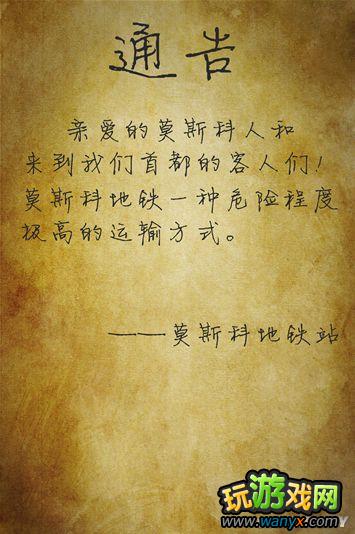 通告
亲爱的莫斯科人和
来到我们首都的客人们!
莫斯科地铁一种危险程度
极高的运输方式。
——莫斯科地铁站
玩游戏网
www.wanyx.com